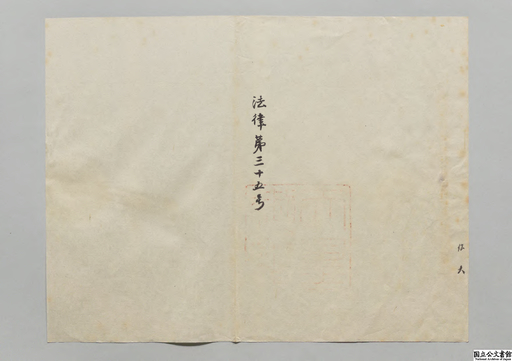 法律第三十五号
国立公文書館
National Archives of Japan